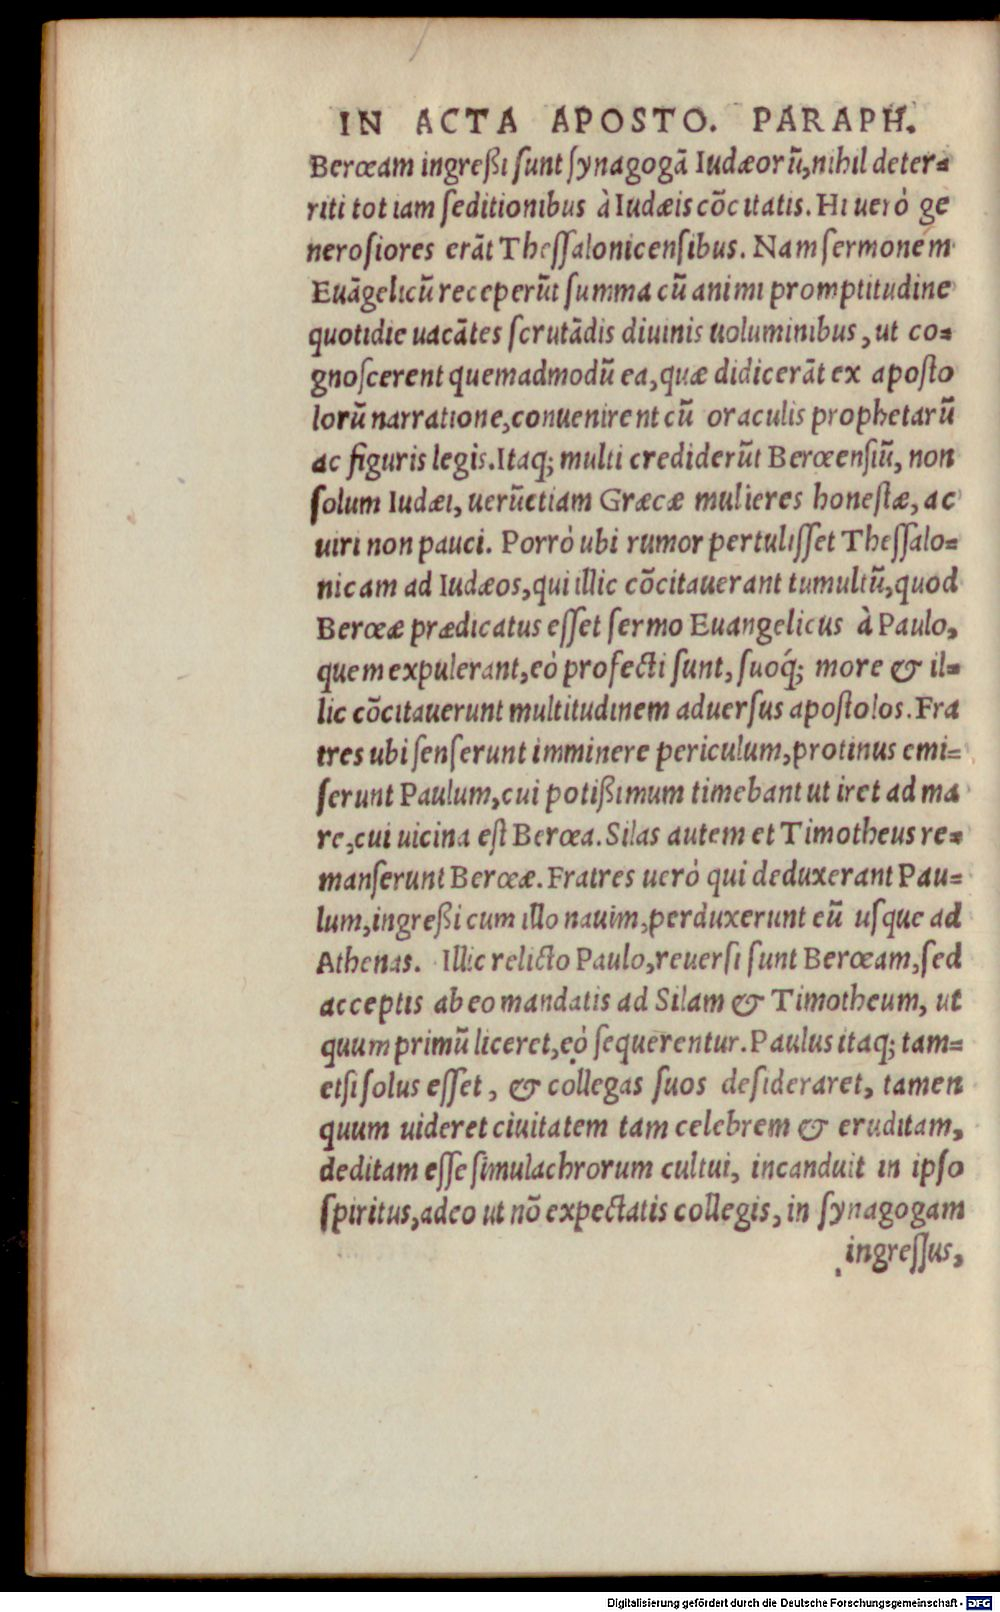 IN ACTA APOSTO. PARAPH.
Berœam ingreßi sunt synagogā Iudæorū, nihil deter=
riti tot iam seditionibus à Iudæis cōcitatis. Hi uerò ge
nerosiores erāt Thessalonicensibus. Nam sermonem
Euāgelicū receperūt summa cū animi promptitudine
quotidie uacātes scrutādis diuinis uoluminibus, ut co=
gnoscerent quemadmodū ea, quæ didicerāt ex aposto
lorū narratione, conuenirent cū oraculis prophetarū
ac figuris legis. Itaq; multi crediderūt Berœensiū, non
solum Iudæi, uerūetiam Græcæ mulieres honestæ, ac
uiri non pauci. Porrò ubi rumor pertulisset Thessalo=
nicam ad Iudæos, qui illic cōcitauerant tumultū, quod
Berœæ prædicatus esset sermo Euangelicus à Paulo,
quem expulerant, eò profecti sunt, suoq́; more & il=
lic cōcitauerunt multitudinem aduersus apostolos. Fra
tres ubi senserunt imminere periculum, protinus emi=
serunt Paulum, cui potißimum timebant ut iret ad ma
re, cui uicina est Berœa. Silas autem et Timotheus re=
manserunt Berœæ. Fratres uerò qui deduxerant Pau=
lum, ingreßi cum illo nauim, perduxerunt eū usque ad
Athenas. Illic relicto Paulo, reuersi sunt Berœam, sed
acceptis ab eo mandatis ad Silam & Timotheum, ut
quum primū liceret, eò sequerentur. Paulus itaq; tam=
etsi solus esset, & collegas suos desideraret, tamen
quum uideret ciuitatem tam celebrem & eruditam,
deditam esse simulachrorum cultui, incanduit in ipso
spiritus, adeo ut nō expectatis collegis, in synagogam
ingressus,
Digitalisierung gefördert durch die Deutsche Forschungsgemeinschaft - DFG